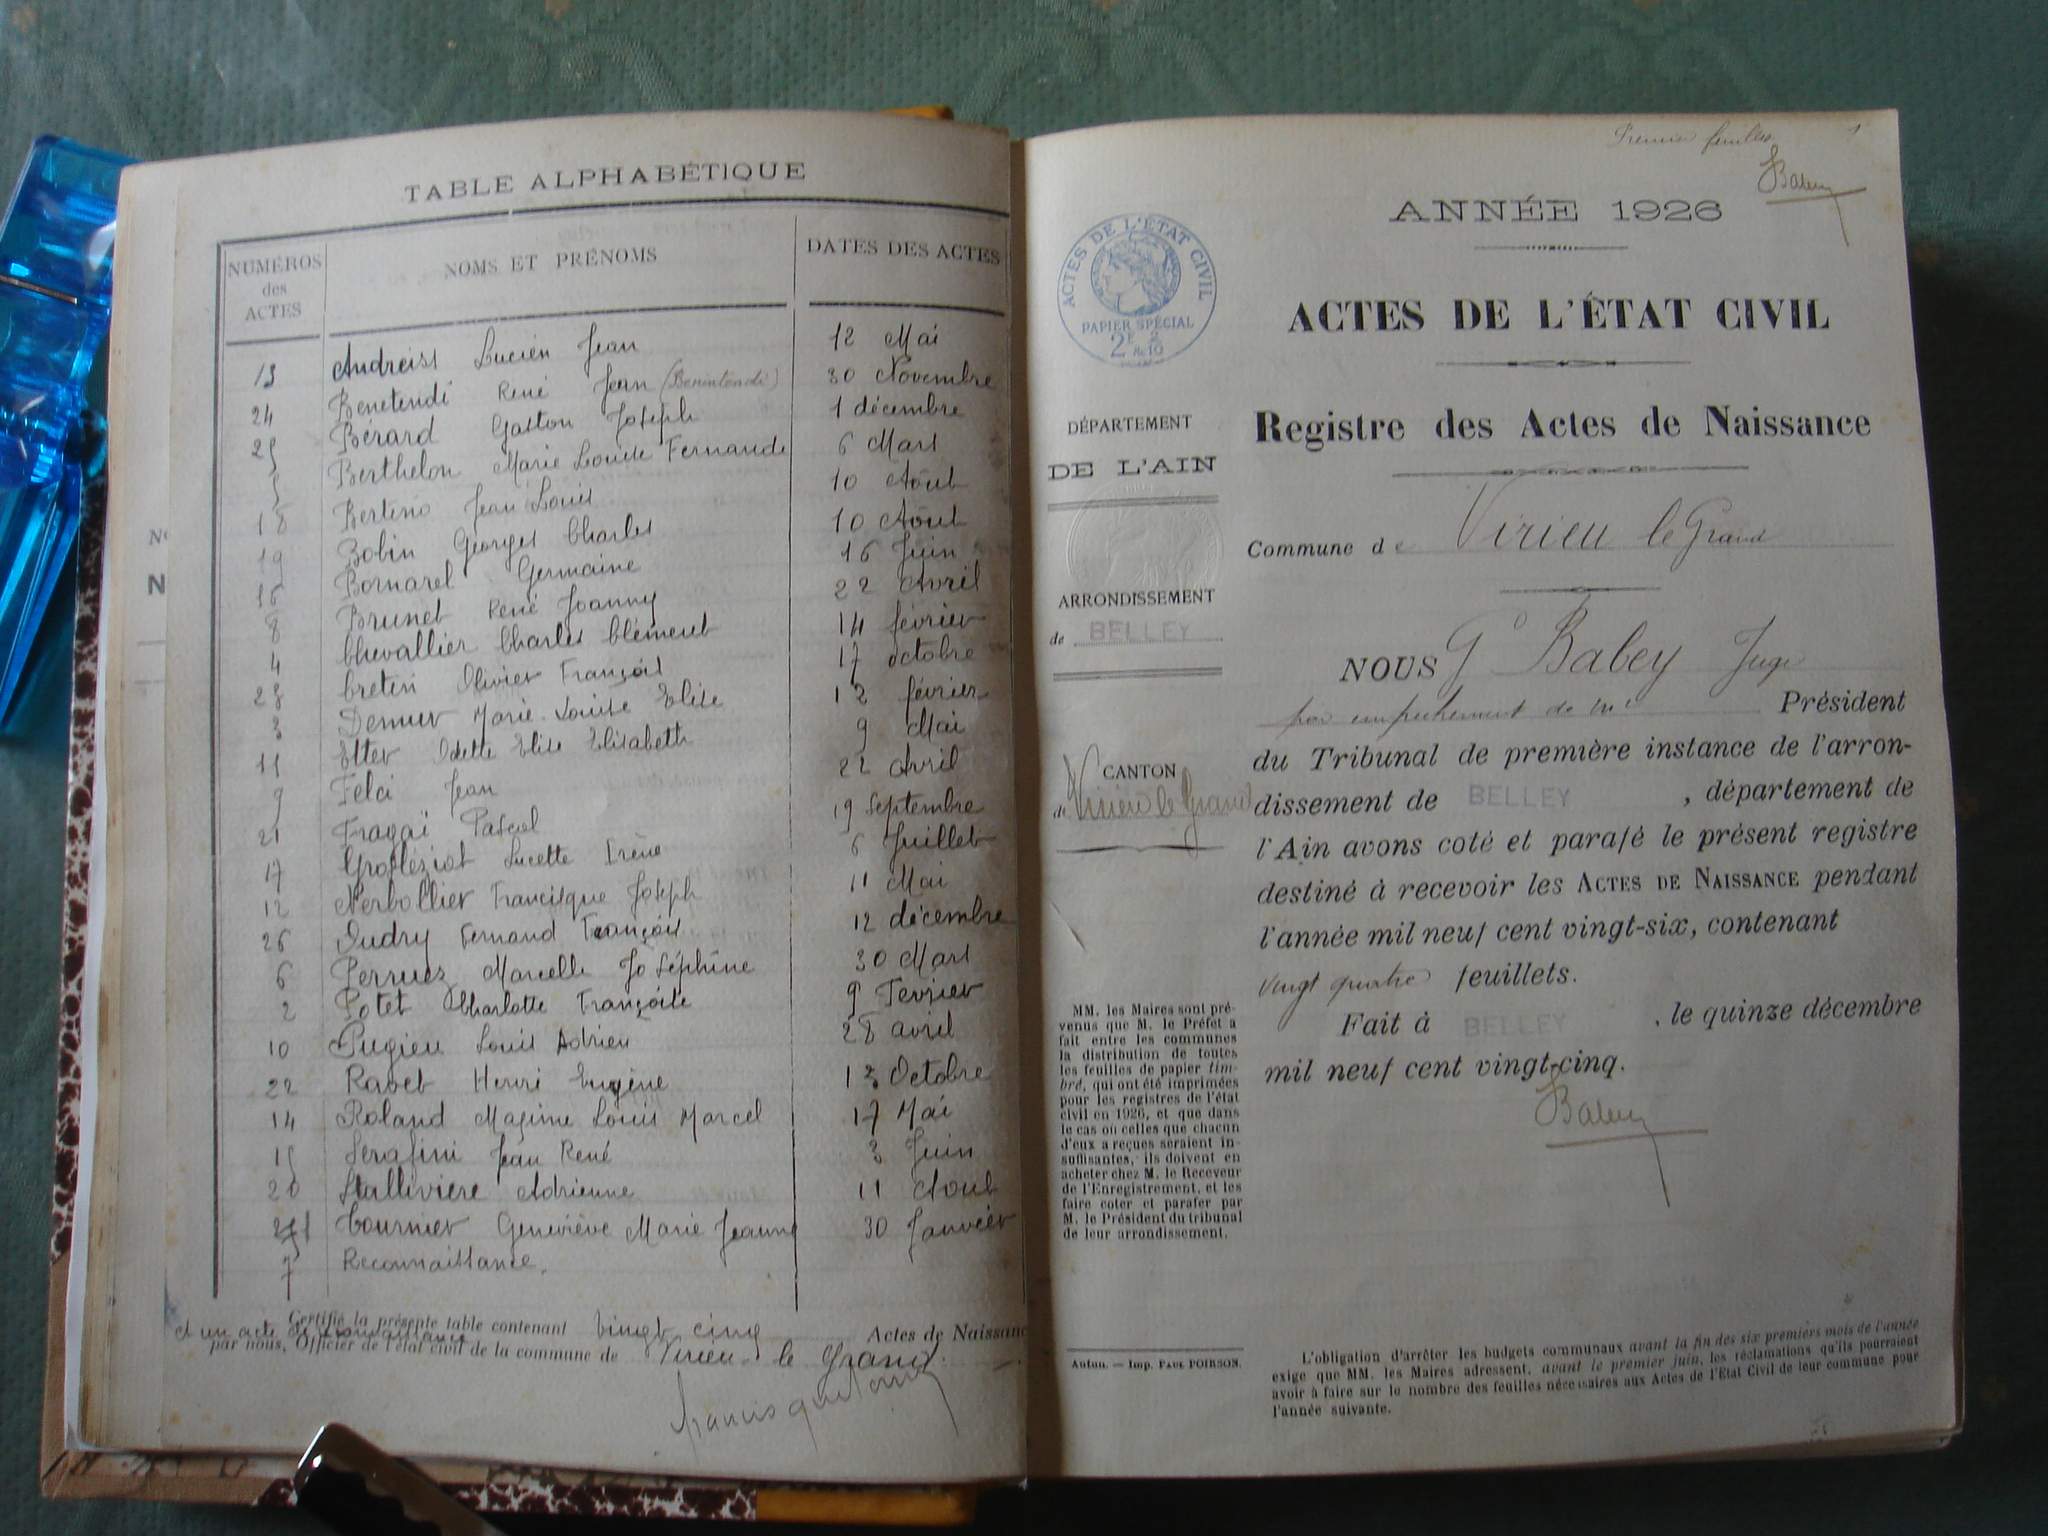 TABLE ALPHABÉTIQUE
NUMÉROS des ACTES NOMS ET PRÉNOMS DATES DES ACTES
13 Andreiss Lucien Jean 12 Mai
24 Benetendi René Jean (Benintendi) 30 Novembre
25 Bérard Gaston Joseph 1 décembre
5 Berthelon Marie Louise Fernande 6 Mars
18 Bertino Jean Louis 10 Août
19 Bobin Georges Charles 10 Août
16 Bornarel Germaine 16 Juin
8 Brunet René Joanny 22 Avril
4 Chevallier Charles Clément 14 février
23 Cretin Olivier François 17 octobre
3 Demur Marie-Louise Elise 12 février
11 Etter Odette Elise Elisabeth 9 Mai
9 Felci Jean 22 Avril
21 Fragaï Pascal 19 Septembre
17 Grosléziat Lucette Irène 6 Juillet
12 Nerbollier Francisque Joseph 11 Mai
26 Oudry Fernand François 12 décembre
6 Perruez Marcelle Joséphine 30 Mars
2 Potet Charlotte Françoise 9 Fevrier
10 Pugieu Louis Adrien 28 avril
22 Ravet Henri Eugène 13 Octobre
14 Roland Maxime Louis Marcel 17 Mai
15 Serafini Jean René 3 Juin
20 Stalliviere Adrienne 11 Aout
1 Tournier Geneviève Marie Jeanne 30 Janvier
7 Reconnaissance.
Certifié la présente table contenant vingt cinq Actes de Naissanc
et un acte de reconnaissance
par nous, Officier de l'état civil de la commune de Virieu-le Grand.
Premier feuillet 1
Babey
ANNÉE 1926
ACTES DE L'ÉTAT CIVIL
PAPIER SPÉCIAL
ACTES DE L'ÉTAT CIVIL
Registre des Actes de Naissance
DÉPARTEMENT
DE L'AIN
Commune de Virieu le Grand
ARRONDISSEMENT
de BELLEY
NOUS Gᵒ Babey Juge
par empêchement de Mʳ Président
du Tribunal de première instance de l'arron-
CANTON
de Virieu le Grand
dissement de BELLEY, département de
l'Ain avons coté et parafé le présent registre
destiné à recevoir les ACTES DE NAISSANCE pendant
l'année mil neuf cent vingt-six, contenant
vingt quatre feuillets.
Fait à BELLEY, le quinze décembre
mil neuf cent vingt-cinq.
Babey
MM. les Maires sont pré-
venus que M. le Préfet a
fait entre les communes
la distribution de toutes
les feuilles de papier tim-
bré, qui ont été imprimées
pour les registres de l'état
civil en 1926, et que dans
le cas où celles que chacun
d'eux a reçues seraient in-
suffisantes, ils doivent en
acheter chez M. le Receveur
de l'Enregistrement, et les
faire coter et parafer par
M. le Président du tribunal
de leur arrondissement.
Autun. — Imp. PAUL POIRSON.
L'obligation d'arrêter les budgets communaux avant la fin des six premiers mois de l'année
exige que MM. les Maires adressent, avant le premier juin, les réclamations qu'ils pourraient
avoir à faire sur le nombre des feuilles nécessaires aux Actes de l'État Civil de leur commune pour
l'année suivante.